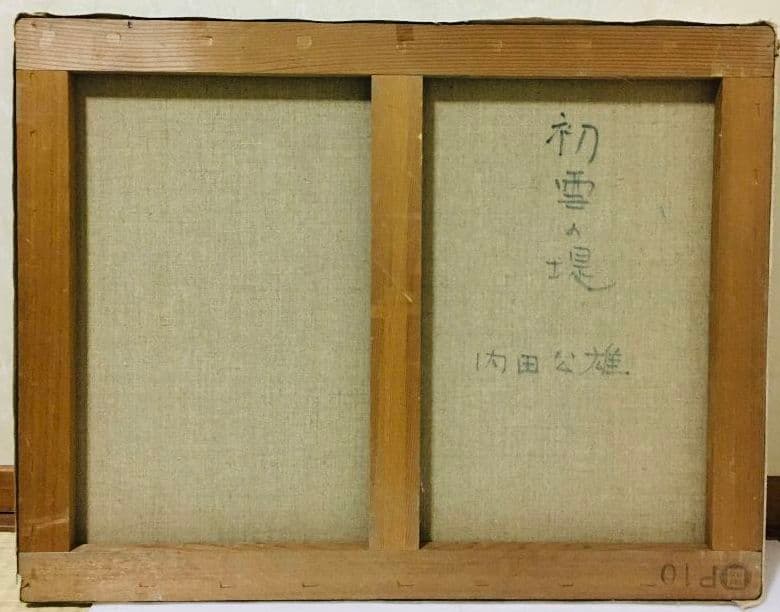 初雪の堤
内田公雄.
P10